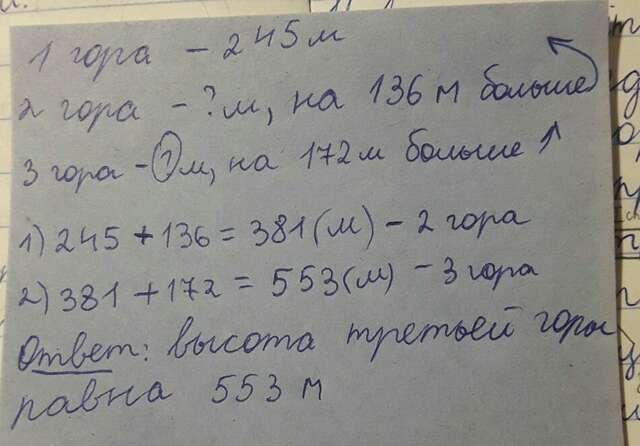 1 гора – 245м
2 гора – ?м, на 136 м больше
3 гора – ?м, на 172м больше
1) 245 + 136 = 381(м) – 2 гора
2) 381 + 172 = 553(м) – 3 гора
Ответ: высота третьей горы
равна 553 м